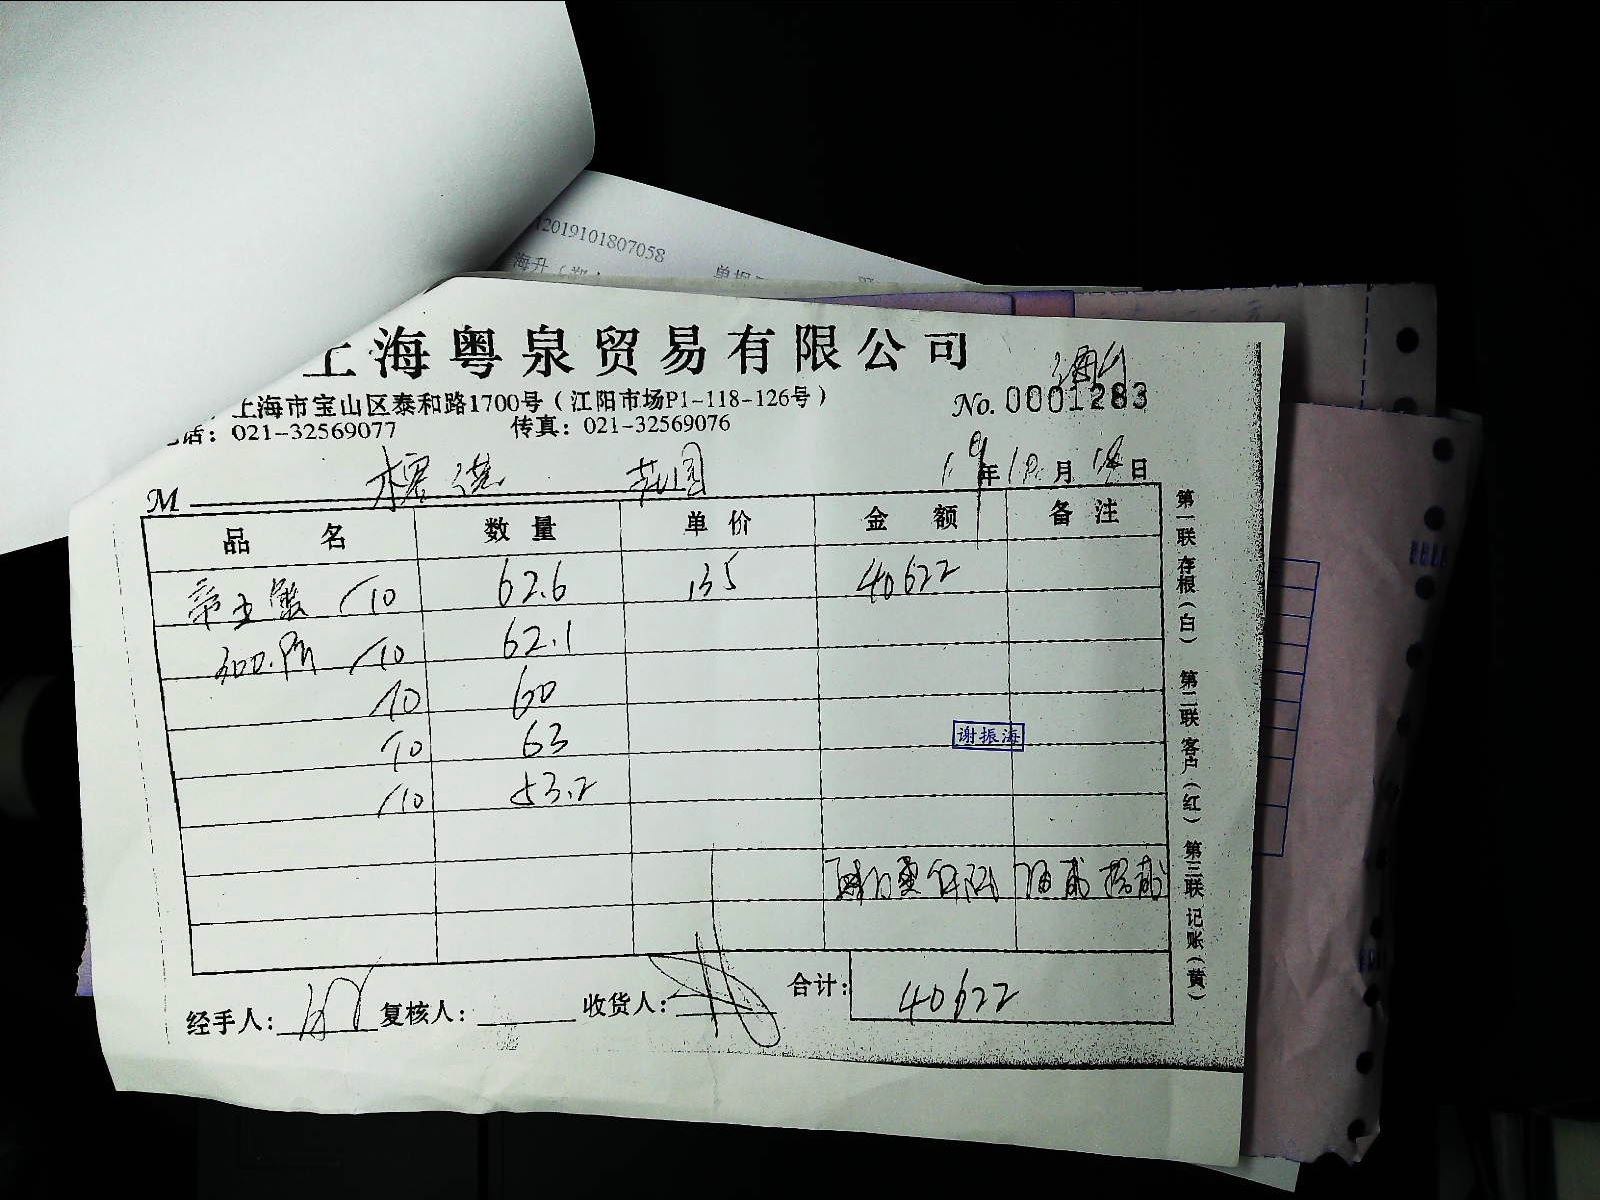 2019101807058
海升
上海粤泉贸易有限公司
上海市宝山区泰和路1700号（江阳市场P1-118-126号）
No. 0001283
话：021-32569077 传真：021-32569076
M 花园 19年10月18日
品 名 数 量 单 价 金 额 备 注
帝王蟹 /10 62.6 135 40622
/10 62.1
/10 60
/10 63
谢振海
/10 53.2
经手人： 复核人： 收货人： 合计： 40622
第一联 存根（白） 第二联 客户（红） 第三联 记账（黄）